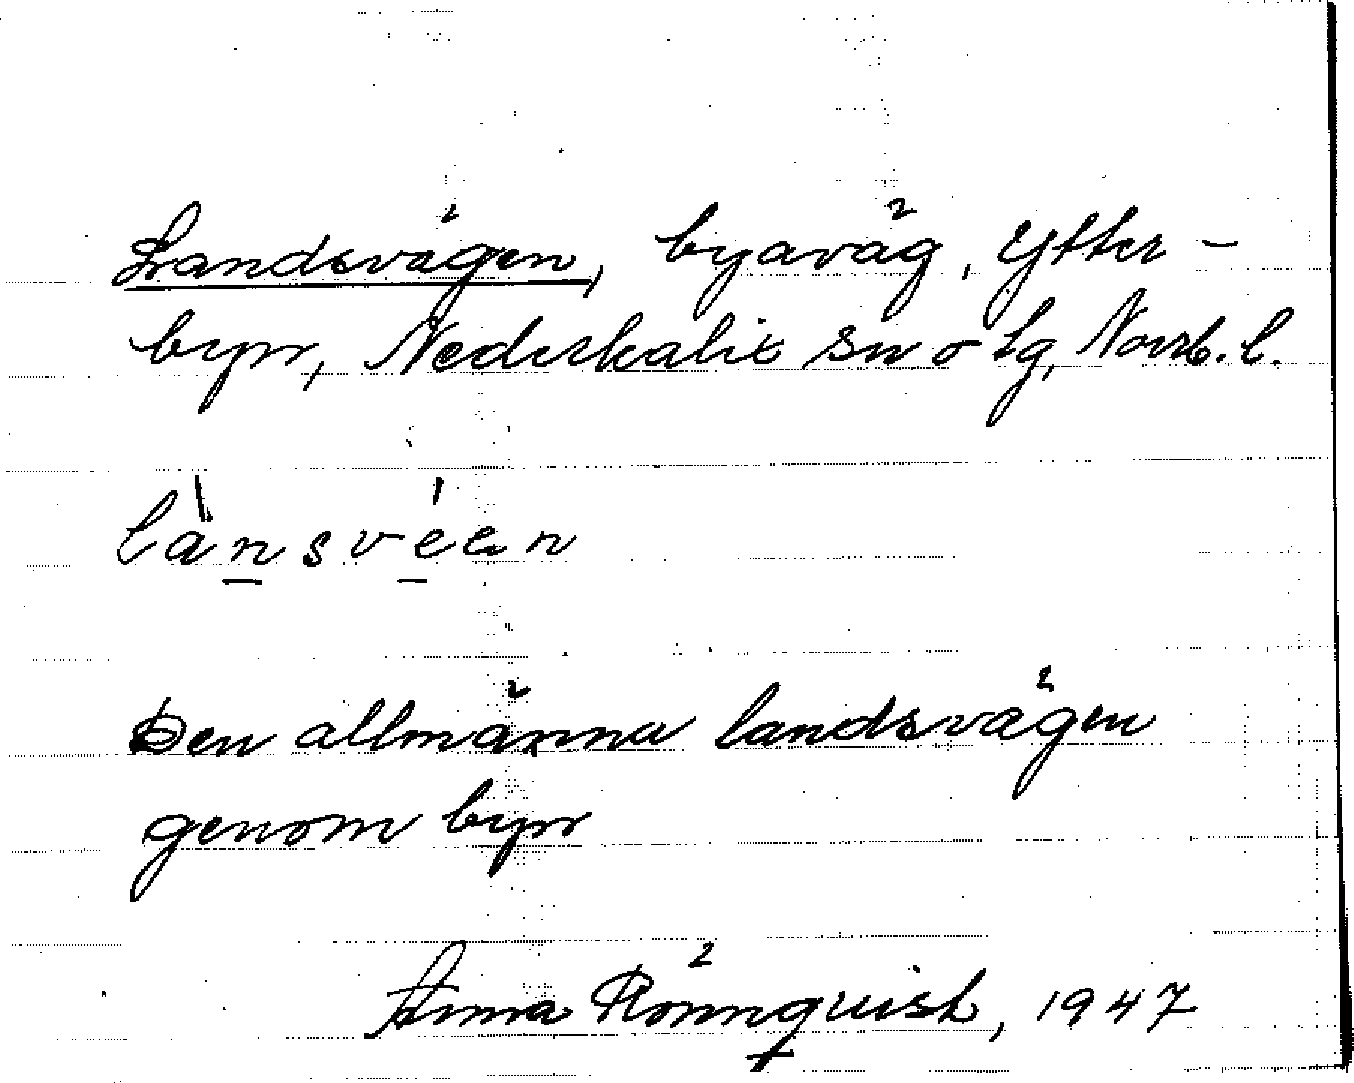 Landsvägen, byaväg, Ytter-
byn, Nederkalix sn o tg, Norrb. l.
lànsvéen
Den allmänna landsvägen
genom byn
Anna Rönnquist, 1947